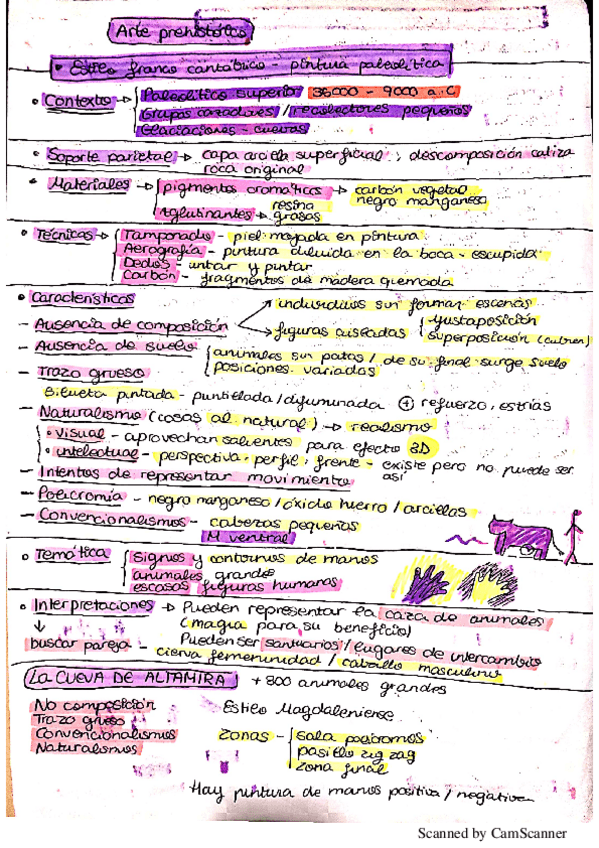 Arte prehistórico
• Estilo franco cantábrico - pintura paleolítica
• Contexto → Paleolítico superior 36000 - 9000 a.C
Grupos cazadores / recolectores pequeños
Glaciaciones - cuevas
• Soporte parietal → capa arcilla superficial, descomposición caliza
roca original
• Materiales → pigmentos cromáticos → carbón vegetal
negro manganeso
Aglutinantes → resina
grasas
• Técnicas → Tamponado - piel mojada en pintura
Aerografía - pintura diluida en la boca - escupida
Dedos - untar y pintar
Carbón - fragmentos de madera quemada
• Características
- Ausencia de composición → individuos sin formar escenas
→ figuras aisladas { yustaposición
superposición (cubren)
- Ausencia de suelo { animales sin patas / de su final surge suelo
posiciones variadas
- Trazo grueso
Silueta pintada - puntillada / difuminada + refuerzo, estrías
- Naturalismo (cosas al natural) → realismo
• visual - aprovechan salientes para efecto 3D
• intelectual - perspectiva - perfil, frente - existe pero no puede ser
así
- Intentos de representar movimiento
- Policromía - negro manganeso / óxido hierro / arcillas
- Convencionalismos - cabezas pequeñas
M ventral
• Temática { Signos y contornos de manos
animales grandes
escasas figuras humanas
• Interpretaciones → Pueden representar la caza de animales
↓ (magia para su beneficio)
buscar pareja - Pueden ser santuarios / lugares de intercambio
cierva femeninidad / caballo masculino
LA CUEVA DE ALTAMIRA + 800 animales grandes
No composición
Trazo grueso
Convencionalismos
Naturalismos
Estilo Magdaleniense
Zonas - { sala policromos
pasillo zig zag
zona final
Hay pintura de manos positiva / negativa
Scanned by CamScanner